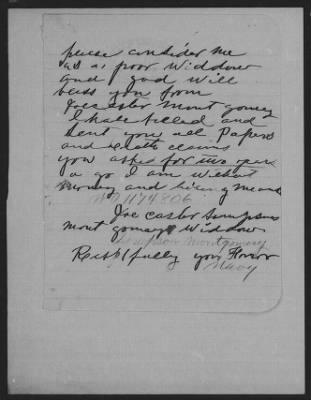 please consider me
as a poor Widdow
and god will
bless you from
Joecaster Mont gomey
I have filled and
sent you all Papers
and claims
you asked for two year
a go I am without
money and living means
WO 1174806
Joe caster Simpson
mont gomery Widdow
Simpson Montgomery
Respfully your Honor
Navy